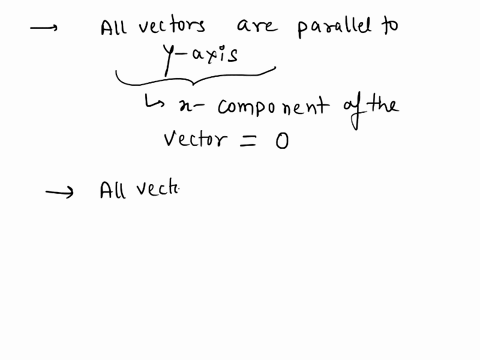 → All vectors are parallel to
Y-axis
↳ x-component of the
vector = 0
→ All vect